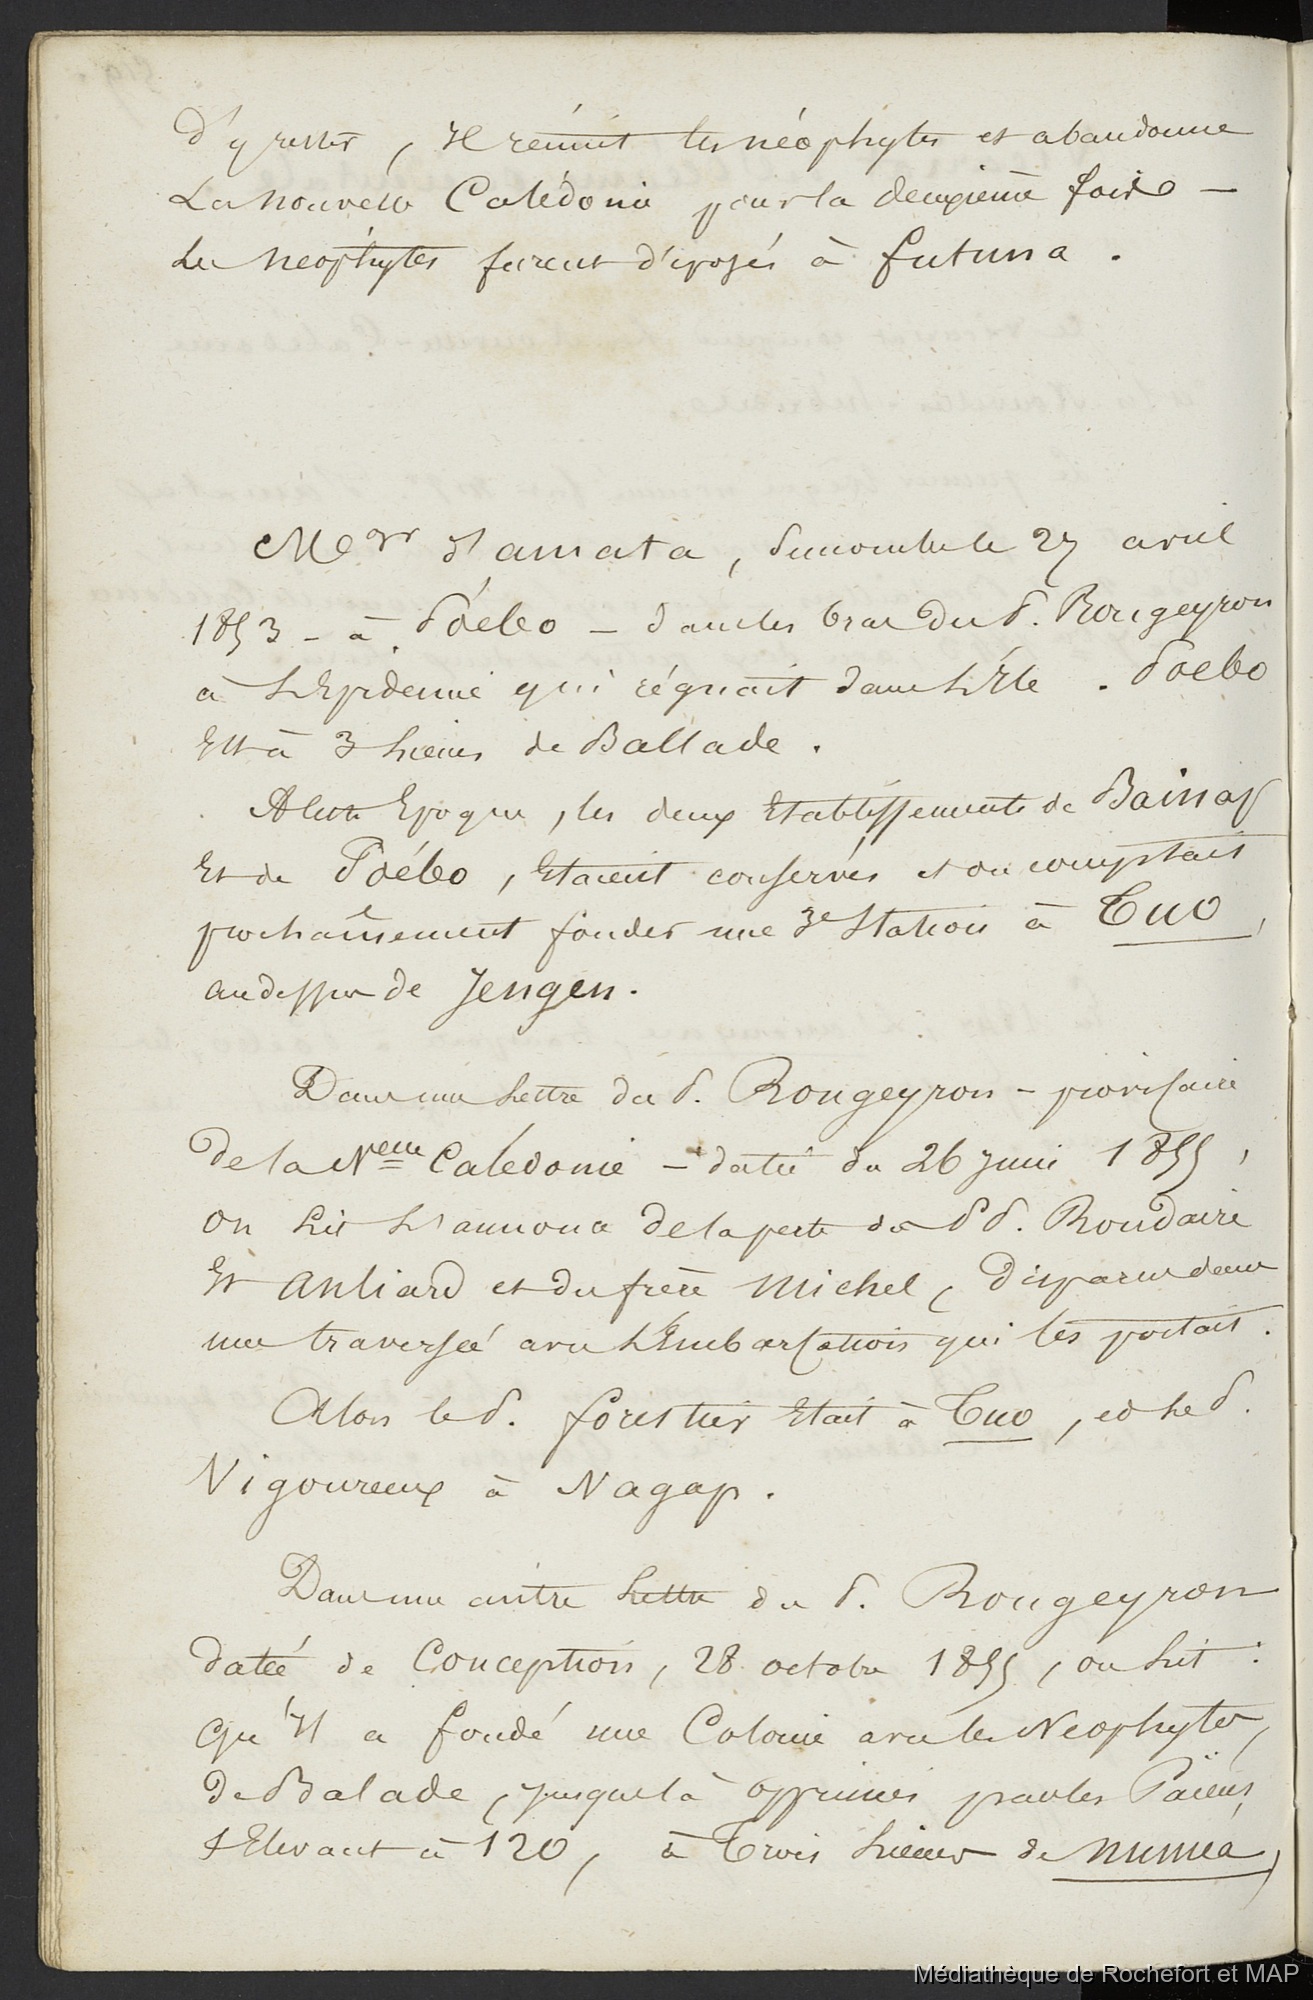 d'y rester, Il réunit les néophytes et abandonne
La nouvelle Calédonie pour la deuxième fois —
Les néophytes furent déposés à futuna.
Mgr d'amata, succombe le 27 avril
1853 - à Poébo — dans les bras du P. Rougeyron
à L'Epidemie qui régnait dans L'Ile. Poebo
Est à 3 lieues de Ballade.
A cette Epoque, les deux Etablissements de
Et de Poébo, Etaient conservés et on comptait
prochainement fonder une 3e Station à Tuo,
au dessus de Jengen.
Dans une Lettre du P. Rougeyron - provicaire
de la Nelle Calédonie — datée du 26 juin 1855,
on Lit L'annonce de la perte des PP. Roudaire
Et Anliard et du frère Michel, disparus dans
une traversée avec L'Embarcation qui les portait.
Alors le P. forestier Etait à Tuo, et Le P.
Vigoureux à Nagap.
Dans une autre Lettre du P. Rougeyron
datée de Conception, 28 octobre 1855, on Lit :
qu'Il a fondé une Colonie avec les Néophytes,
de Balade, jusque là opprimés par les Païens,
s'Elevant à 120, à Trois Lieues de Numea,
Médiathèque de Rochefort et MAP